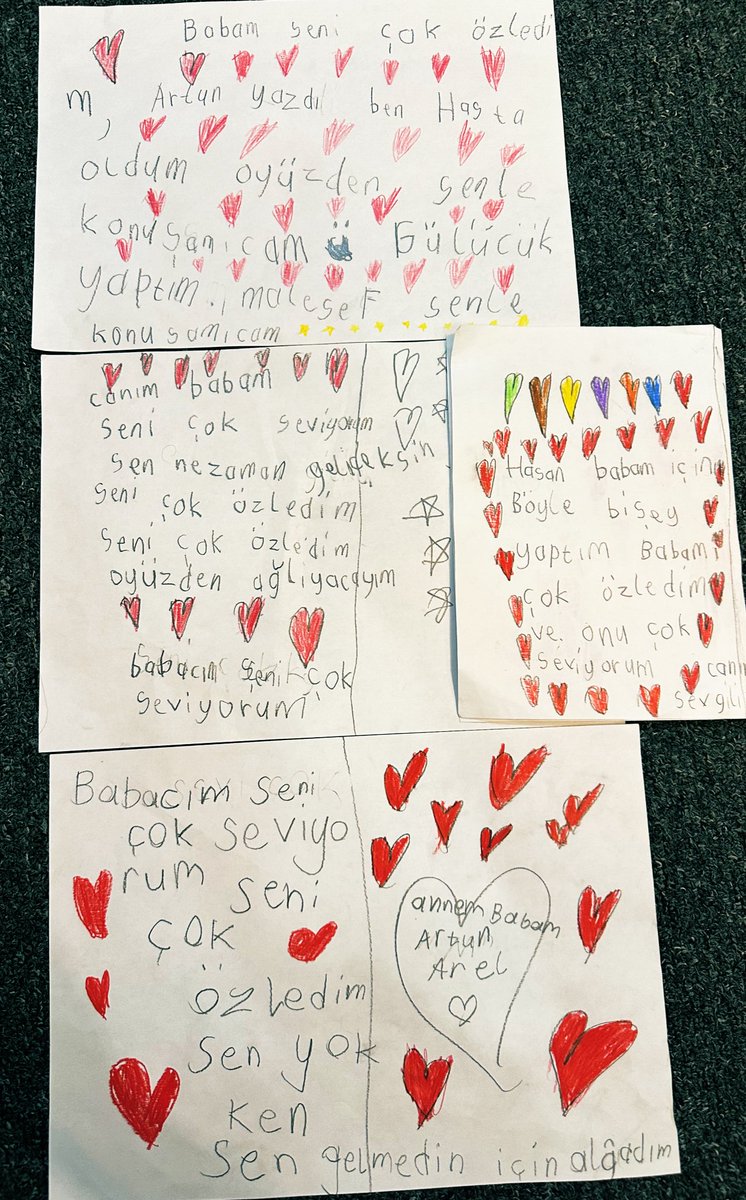 Babam seni çok özledi
m, Artun yazdı ben Hasta
oldum oyüzden senle
konuşanıcam Gülücük
yaptım. malesef senle
konuşamıcam
canım babam
seni çok seviyorum
sen nezaman geliceksin
seni çok özledim
seni çok özledim
oyüzden ağlıyacayım
babacım seni çok
seviyorum
Hasan babam için
Böyle bişey
yaptım Babamı
çok özledim
ve. onu çok
seviyorum canım
sevgili
Babacım seni
çok seviyo
rum seni
çok
özledim
sen yok
ken
sen gelmedin için alğadım
annem Babam
Artun
Arel